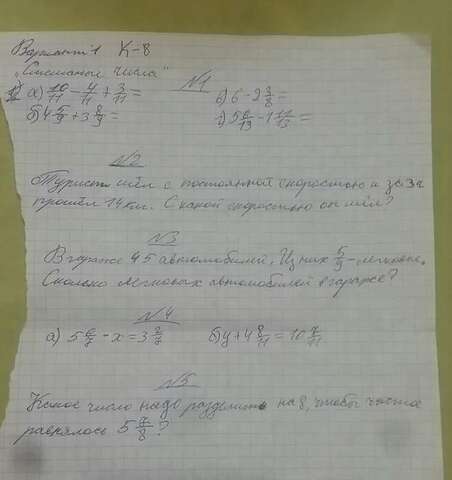 Вариант 1 К-8
"Смешанные числа"
№1
а) 10/11 - 4/11 + 3/11 = в) 6 - 2 3/8 =
б) 4 5/9 + 3 8/9 = г) 5 6/13 - 1 11/13 =
№2
Турист шёл с постоянной скоростью и за 3ч
прошёл 14 км. С какой скоростью он шёл?
№3
В гараже 45 автомобилей. Из них 5/9 - легковые.
Сколько легковых автомобилей в гараже?
№4
а) 5 6/7 - x = 3 2/7 б) y + 4 8/11 = 10 7/11
№5
Какое число надо разделить на 8, чтобы частное
равнялось 5 7/8?